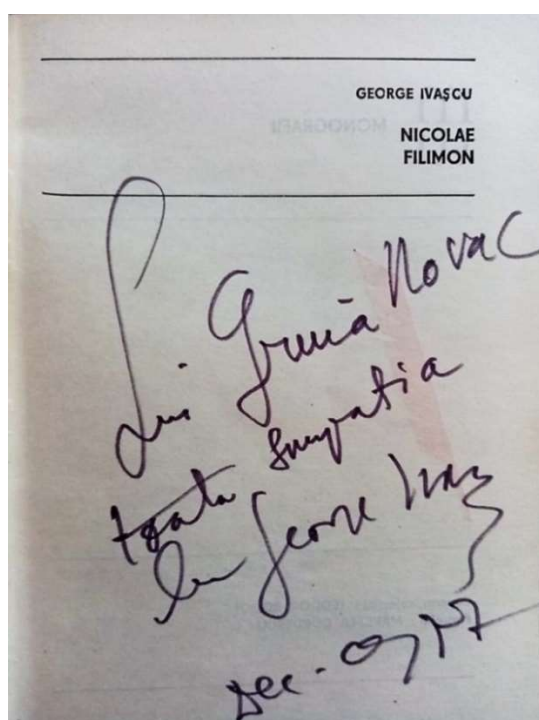 GEORGE IVAȘCU
NICOLAE
FILIMON
MONOGRAFII
Lui Gruia Novac
toata simpatia
lui George Ivașcu
Dec.